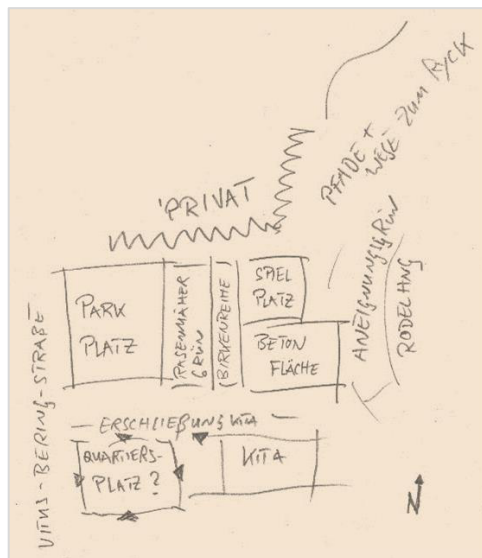 PFADE +
WEGE ZUM RYCK
'PRIVAT
PARK
PLATZ
RASENMÄHER
GRÜN
BIRKENREIHE
SPIEL
PLATZ
BETON
FLÄCHE
ANEIGNUNGSGRÜN
RODELHANG
VITUS-BERING-STRAßE
— ERSCHLIEßUNG KITA —
QUARTIERS-
PLATZ?
KITA
N